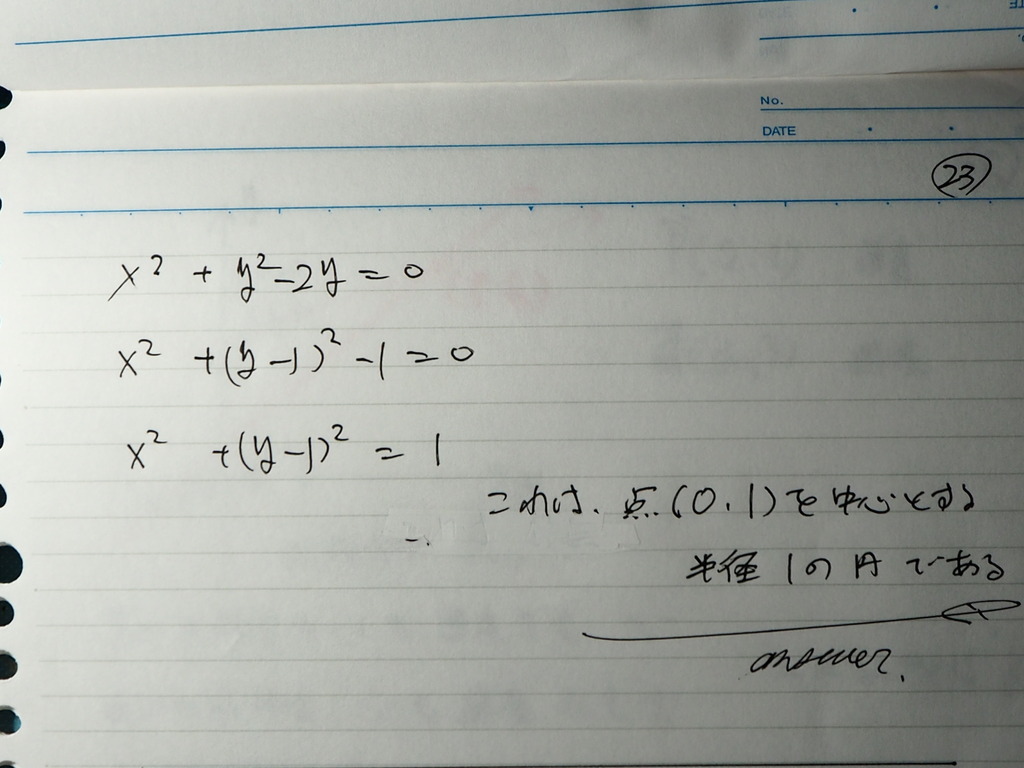 No.
DATE
23
x² + y² - 2y = 0
x² + (y - 1)² - 1 = 0
x² + (y - 1)² = 1
これは、点(0,1)を中心とする
半径1の円である
answer.